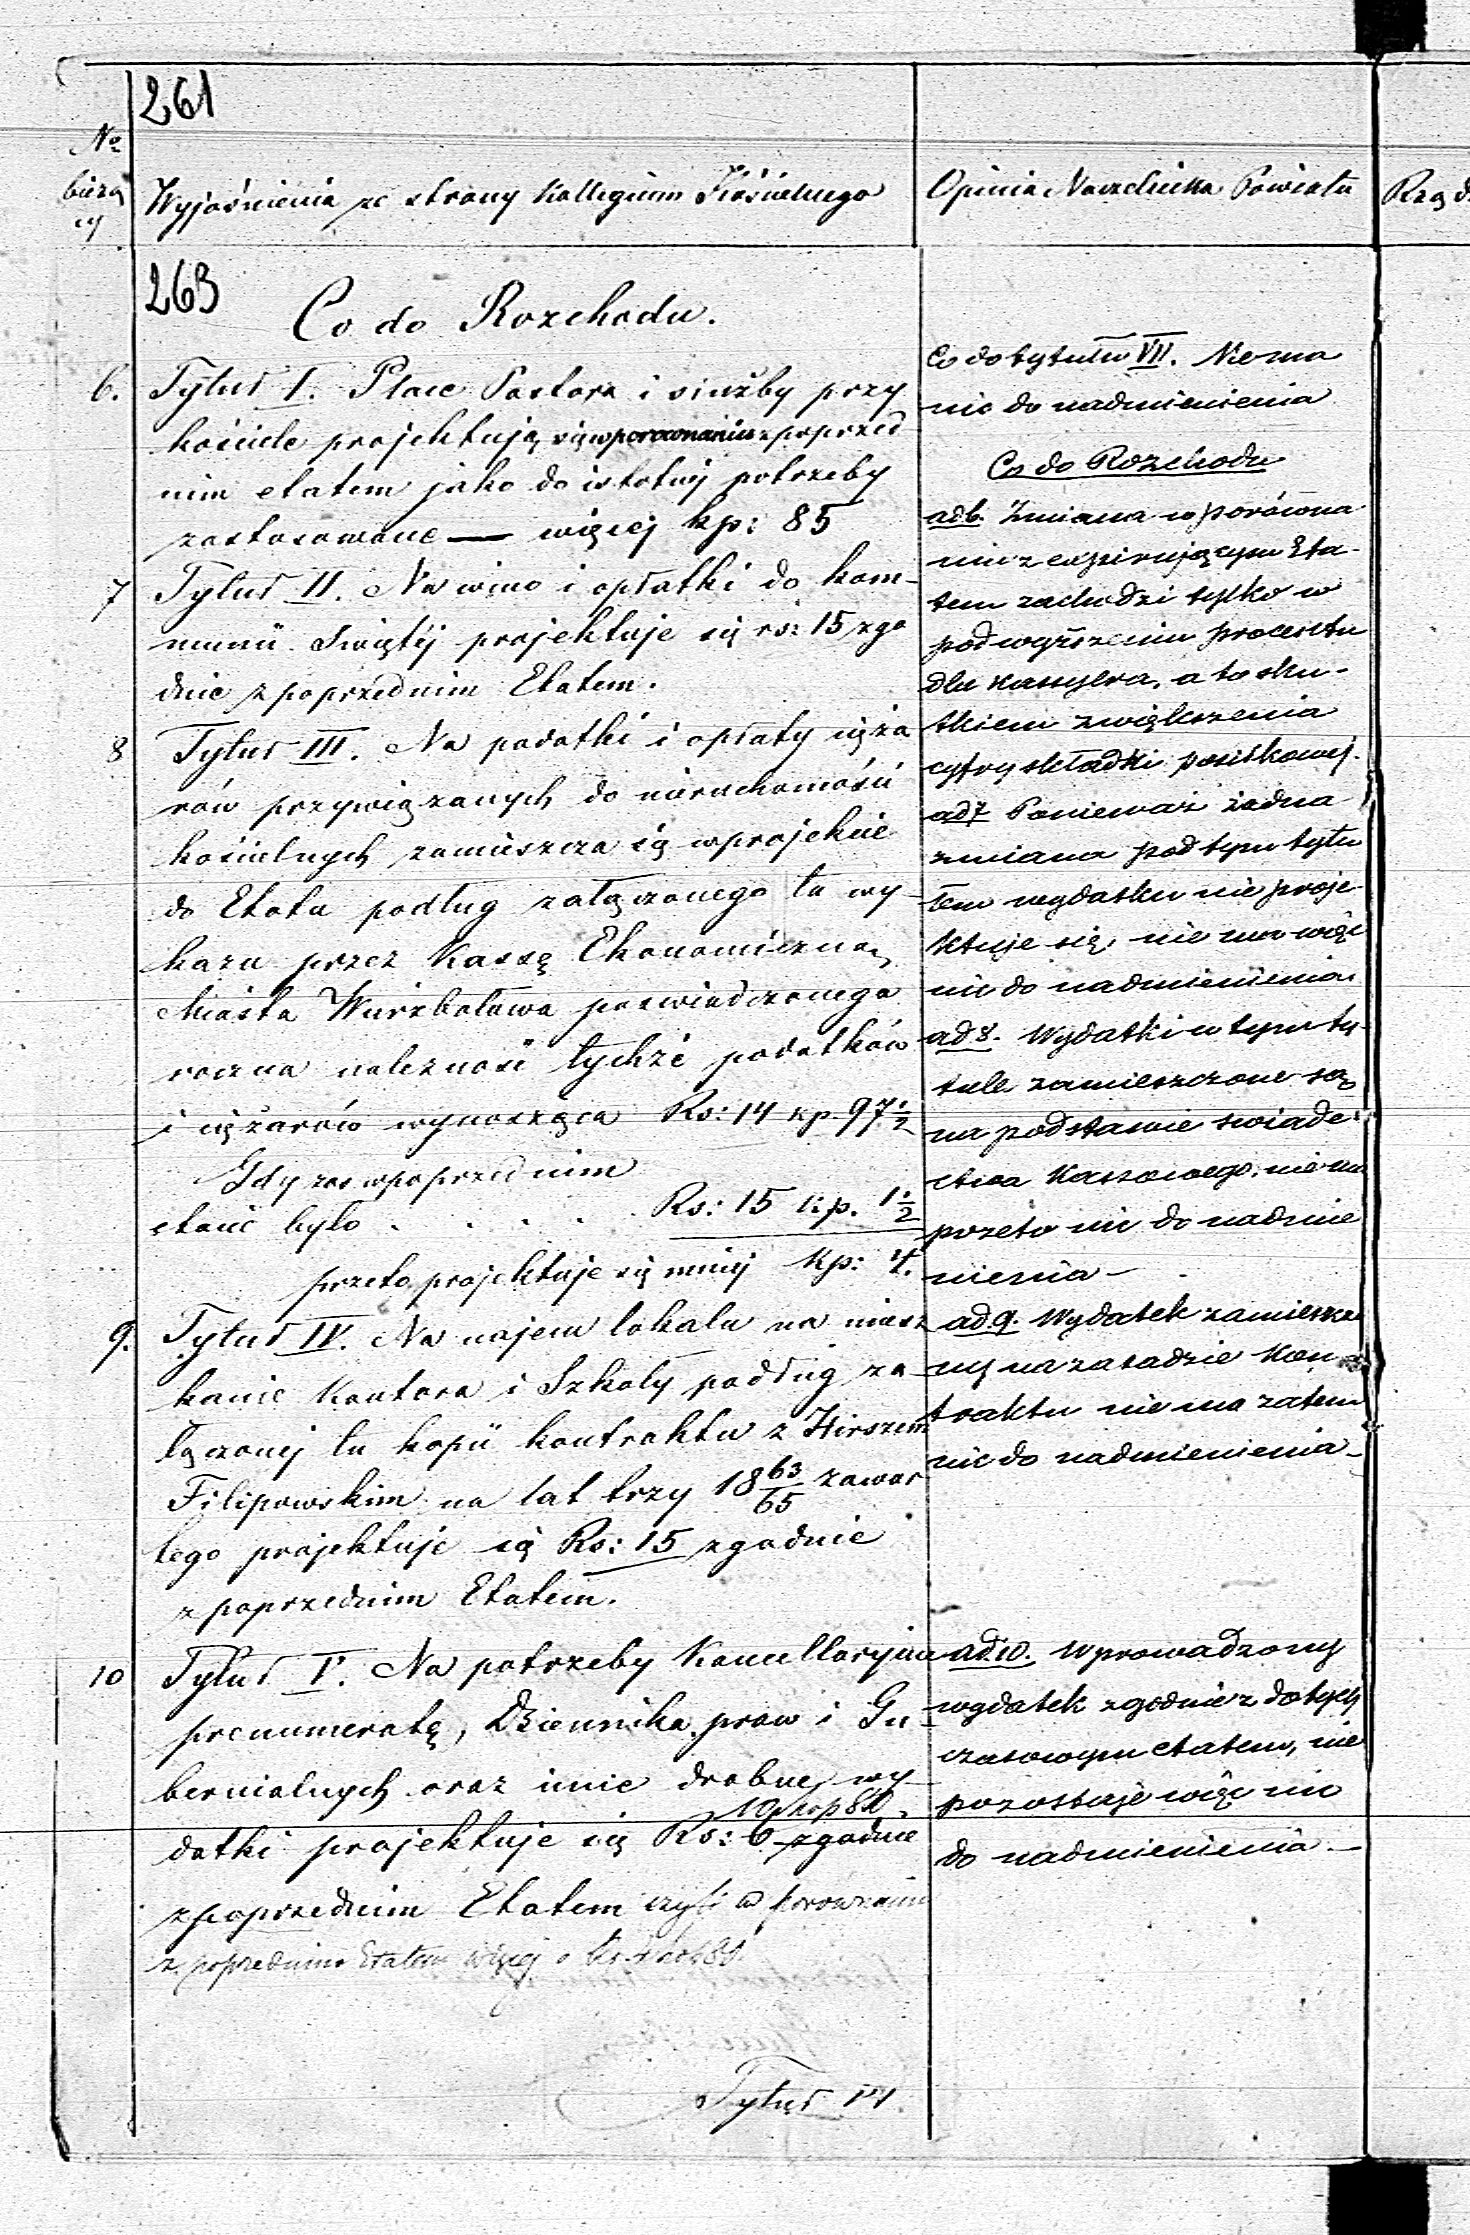 261
№
bieżą
cy
Wyjaśnienia ze strony Kollegium Kościelnego
Opinia Naczelnika Powiatu
Rząd
263
Co do Rozchodu.
6.
Tytuł I. Płace Pastora i służby przy
kościele projektują się w porownaniu z poprzed
nim etatem jako do istotnej potrzeby
zastosowane — więcej kp: 85
7
Tytuł II. Na wino i opłatki do kom-
munii Swiętéj projektuje się rs: 15 zgo
dnie z poprzednim Etatem.
8
Tytuł III. Na podatki i opłaty cięża
rów przywiązanych do nieruchomości
kościelnych zamieszcza się w projekcie
do Etatu podług załączonego tu wy-
kazu przez Kassę Ekonomiczną
Miasta Wierzbołowa poswiadczonego
roczna należność tychże podatków
i ciężarów wynosząca Rs: 14 kp. 97½
Gdy zas w poprzednim
etacie było . . . . . Rs: 15 kp. 1½
przeto projektuje się mniej kp: 4.
9.
Tytuł IV. Na najem lokalu na miesz
kanie Kantora i Szkoły podług za-
łączonej tu kopii kontraktu z Hirszem
Filipowskim na lat trzy 18 63/65 zawar
tego projektuje się Rs: 15 zgodnie
z poprzednim Etatem.
10
Tytuł V. Na potrzeby Kancellaryjne
prenumeratę, Dziennika praw i Gu-
bernialnych oraz inne drobne wy-
10 kop 80
datki projektuje się Rs: 6 zgodnie
z poprzednim Etatem czyli w porownaniu
z poprzednim Etatem więcej o Rs. 4 kop 80
Tytuł VI
Co do tytułu VII. Niema
nic do nadmienienia
Co do Rozchodu
ad 6. Zmiana w porówna
niu z expirującym Eta-
tem zachodzi tylko w
podwyższeniu procentu
dla kassyera, a to sku-
tkiem zwiększenia
cyfry składki posiłkowej.
ad 7 Ponieważ żadna
zmiana pod tym tytu
łem wydatku nie proje
ktuje się, nie ma więc
nic do nadmienienia
ad 8. Wydatki w tym ty-
tule zamieszczone są
na podstawie swiade-
ctwa Kassowego, nie ma
przeto nic do nadmie
nienia —
ad 9. Wydatek zamieszczo
ny na zasadzie Kon-
traktu nie ma zatem
nic do nadmienienia —
ad 10. Wprowadzony
wydatek zgodnie z dotych
czasowym etatem, nie
pozostaje więc nic
do nadmienienia. —